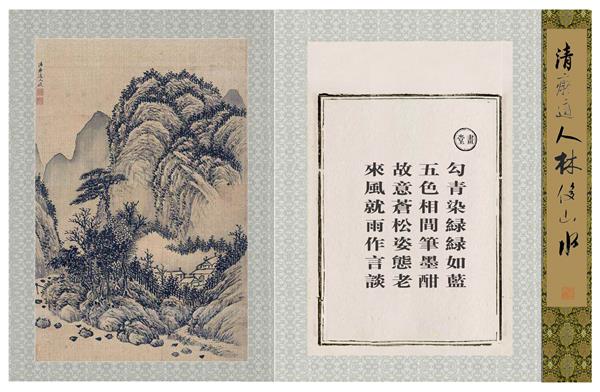 清
人林
山水
畫堂
勾青染緑緑如藍
五色相間筆墨酣
故意蒼松姿態老
來風就雨作言談